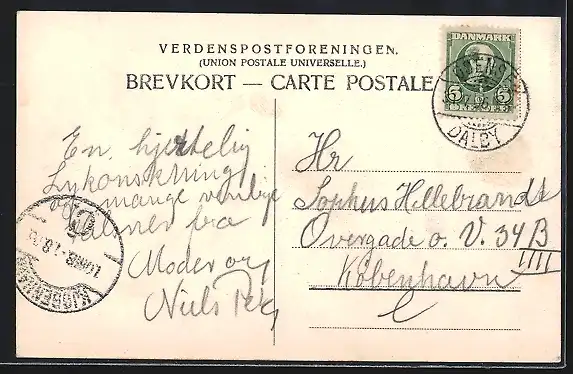 VERDENSPOSTFORENINGEN.
(UNION POSTALE UNIVERSELLE.)
BREVKORT — CARTE POSTALE
DANMARK
5 5
DALBY
En hjertelig
Lykønskning
og mange venlige
fra
Moder og
Niels
KJØBENHAVN
Hr
Sophus Hillebrandt
Overgade o. V. 34 B
IIII
København
C